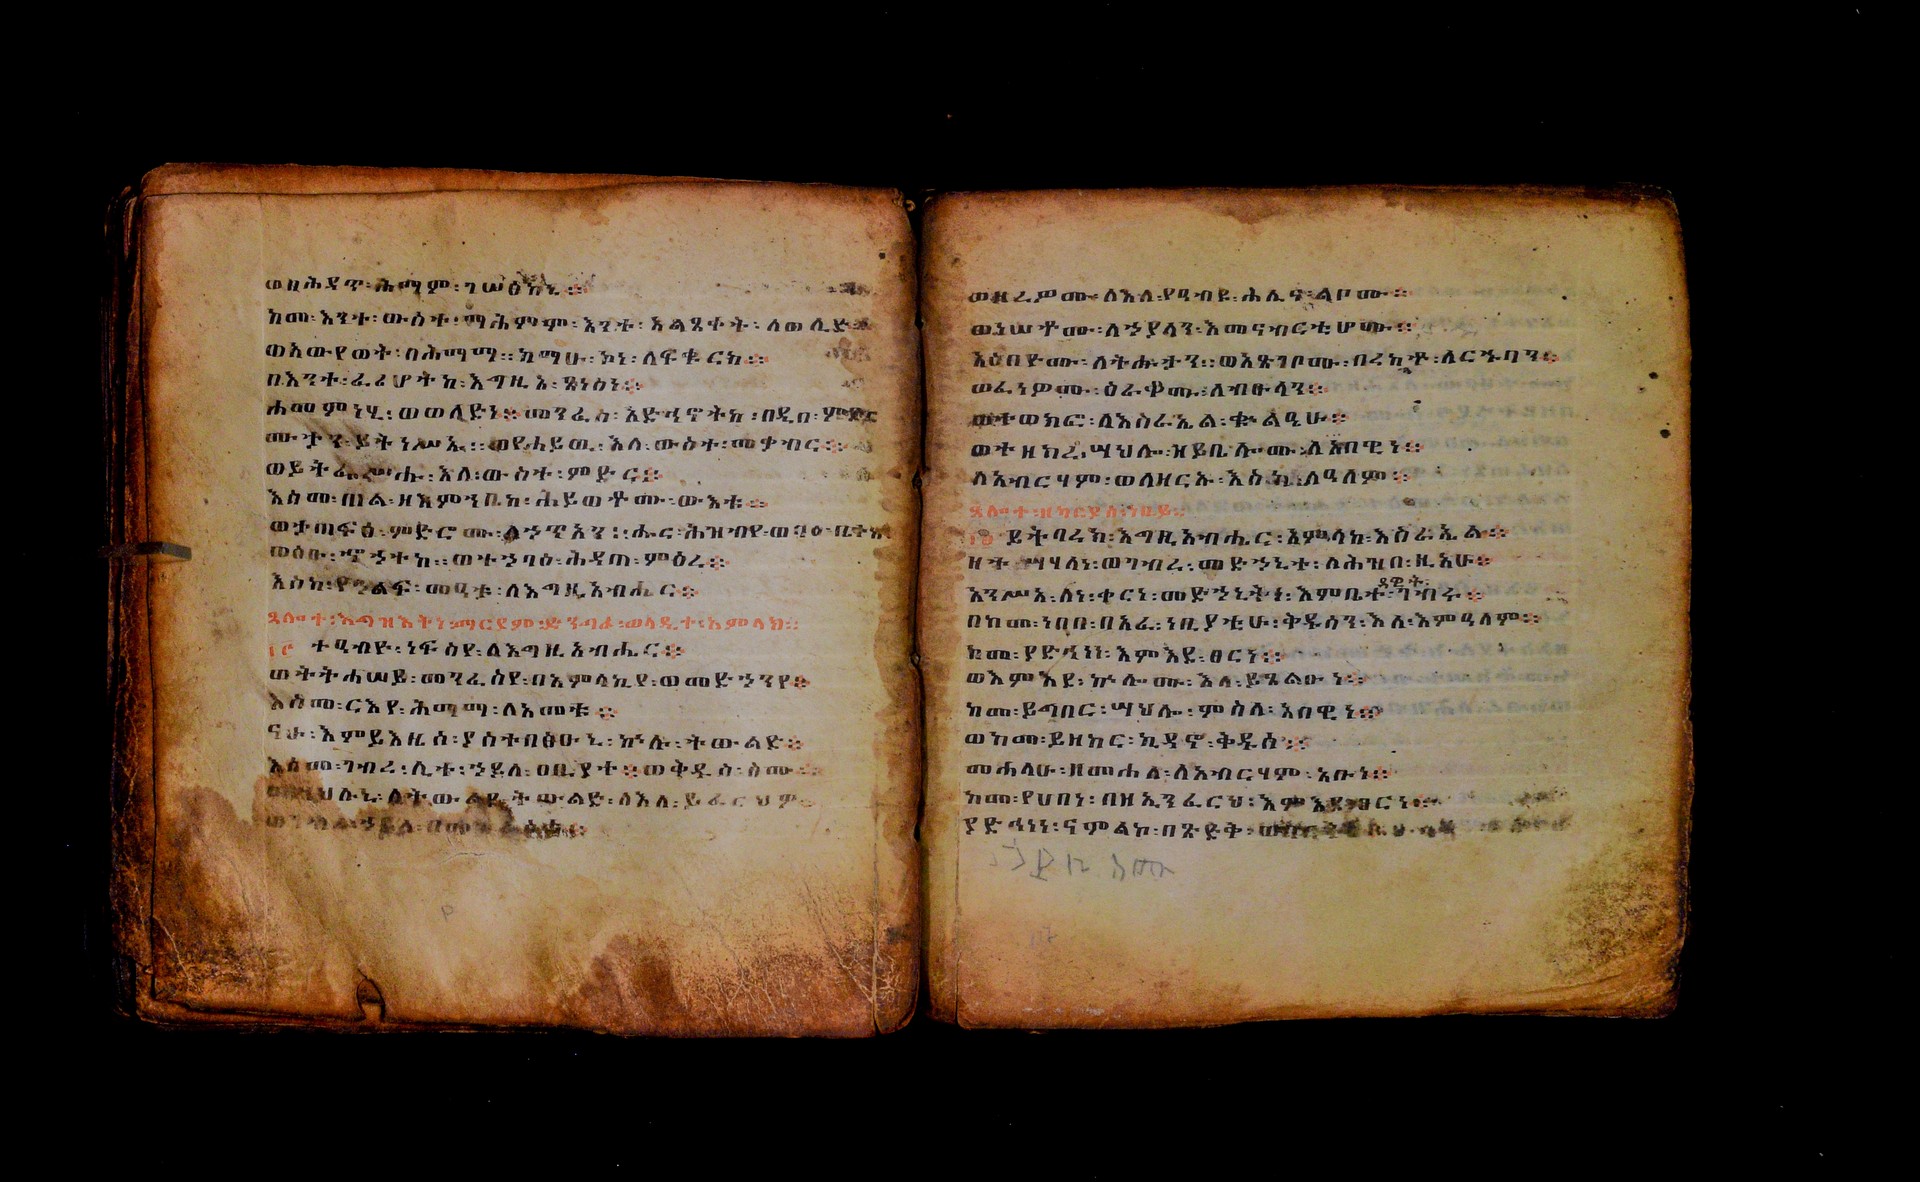 ወበሕዳጥ፡ሕማም፡ገሠፅከኒ።
ከመ፡እንተ፡ውስተ፡ማሕምም፡እንተ፡አልጸቀት፡ለወሊድ።
ወአውየወት፡በሕማማ።ከማሁ፡ኮነ፡ለፍቁርከ።
በእንተ፡ፈሪሆትከ፡እግዚኦ፡ፀነስነ።
ሐመምነሂ፡ወወለድነ።መንፈሰ፡አድኅኖትከ፡በዲበ፡ምድር
ሙታን፡ይትነሥኡ።ወየሐይዉ፡እለ፡ውስተ፡መቃብር።
ወይትፌሥሑ፡እለ፡ውስተ፡ምድር።
እስመ፡ጠል፡ዘእምኀቤከ፡ሕይወቶሙ፡ውእቱ።
ወታጠፍዕ፡ምድሮሙ፡ለኃጥአን።ሑር፡ሕዝብየ፡ወባዕ፡ቤተከ
ወዕፁ፡ኆኅተከ።ወተኀባዕ፡ሕዳጠ፡ምዕረ።
እስከ፡የኀልፍ፡መዓቱ፡ለእግዚአብሔር።
ጸሎተ፡እግዝእትነ፡ማርያም፡ድንግል፡ወላዲተ፡አምላክ።
ተዓብዮ፡ነፍስየ፡ለእግዚአብሔር።
ወትትሐሠይ፡መንፈስየ፡በአምላኪየ፡ወመድኃንየ።
እስመ፡ርእየ፡ሕማማ፡ለአመቱ።
ናሁ፡እምይእዜሰ፡ያስተበፅዑኒ፡ኵሉ፡ትውልድ።
እስመ፡ገብረ፡ሊተ፡ኃይለ፡ዐቢያተ።ወቅዱስ፡ስሙ።
ወሣህሉኒ፡ለትውልደ፡ትውልድ፡ለእለ፡ይፈርህዎ።
ወገብረ፡ኃይለ፡በመዝራዕቱ።
ወዘረዎሙ፡ለእለ፡የዓብዩ፡ሕሊና፡ልቦሙ።
ወነሠቶሙ፡ለኃያላን፡እመናብርቲሆሙ።
አዕበዮሙ፡ለትሑታን።ወአጽገቦሙ፡በረከቶ፡ለርኁባን።
ወፈነዎሙ፡ዕራቆሙ፡ለብዑላን።
ወተወክፎ፡ለእስራኤል፡ቍልዔሁ።
ወተዘከረ፡ሣህሎ፡ዝይቤሎሙ፡ለአበዊነ።
ለአብርሃም፡ወለዘርኡ፡እስከ፡ለዓለም።
ጸሎተ፡ዘካርያስ፡ነቢይ።
ይትባረክ፡እግዚአብሔር፡አምላከ፡እስራኤል።
ዘተሣሃለነ፡ወገብረ፡መድኃኒተ፡ለሕዝበ፡ዚአሁ።
ዳዊት፡
አንሥአ፡ለነ፡ቀርነ፡መድኃኒትነ፡እምቤተ፡ገብሩ።
በከመ፡ነበበ፡በአፈ፡ነቢያቲሁ፡ቅዱሳን፡እለ፡እምዓለም።
ከመ፡ያድኅነነ፡እምእደ፡ፀርነ።
ወእምእደ፡ኵሎሙ፡እለ፡ይጸልዑነ።
ከመ፡ይግበር፡ሣህሎ፡ምስለ፡አበዊነ።
ወከመ፡ይዘከር፡ኪዳኖ፡ቅዱሰ።
መሐላሁ፡ዘመሐለ፡ለአብርሃም፡አቡነ።
ከመ፡የሀበነ፡በዘኢንፈርህ፡እምእደ፡ፀርነ።
ያድኅነነ፡ናምልኮ፡በጽድቅ፡